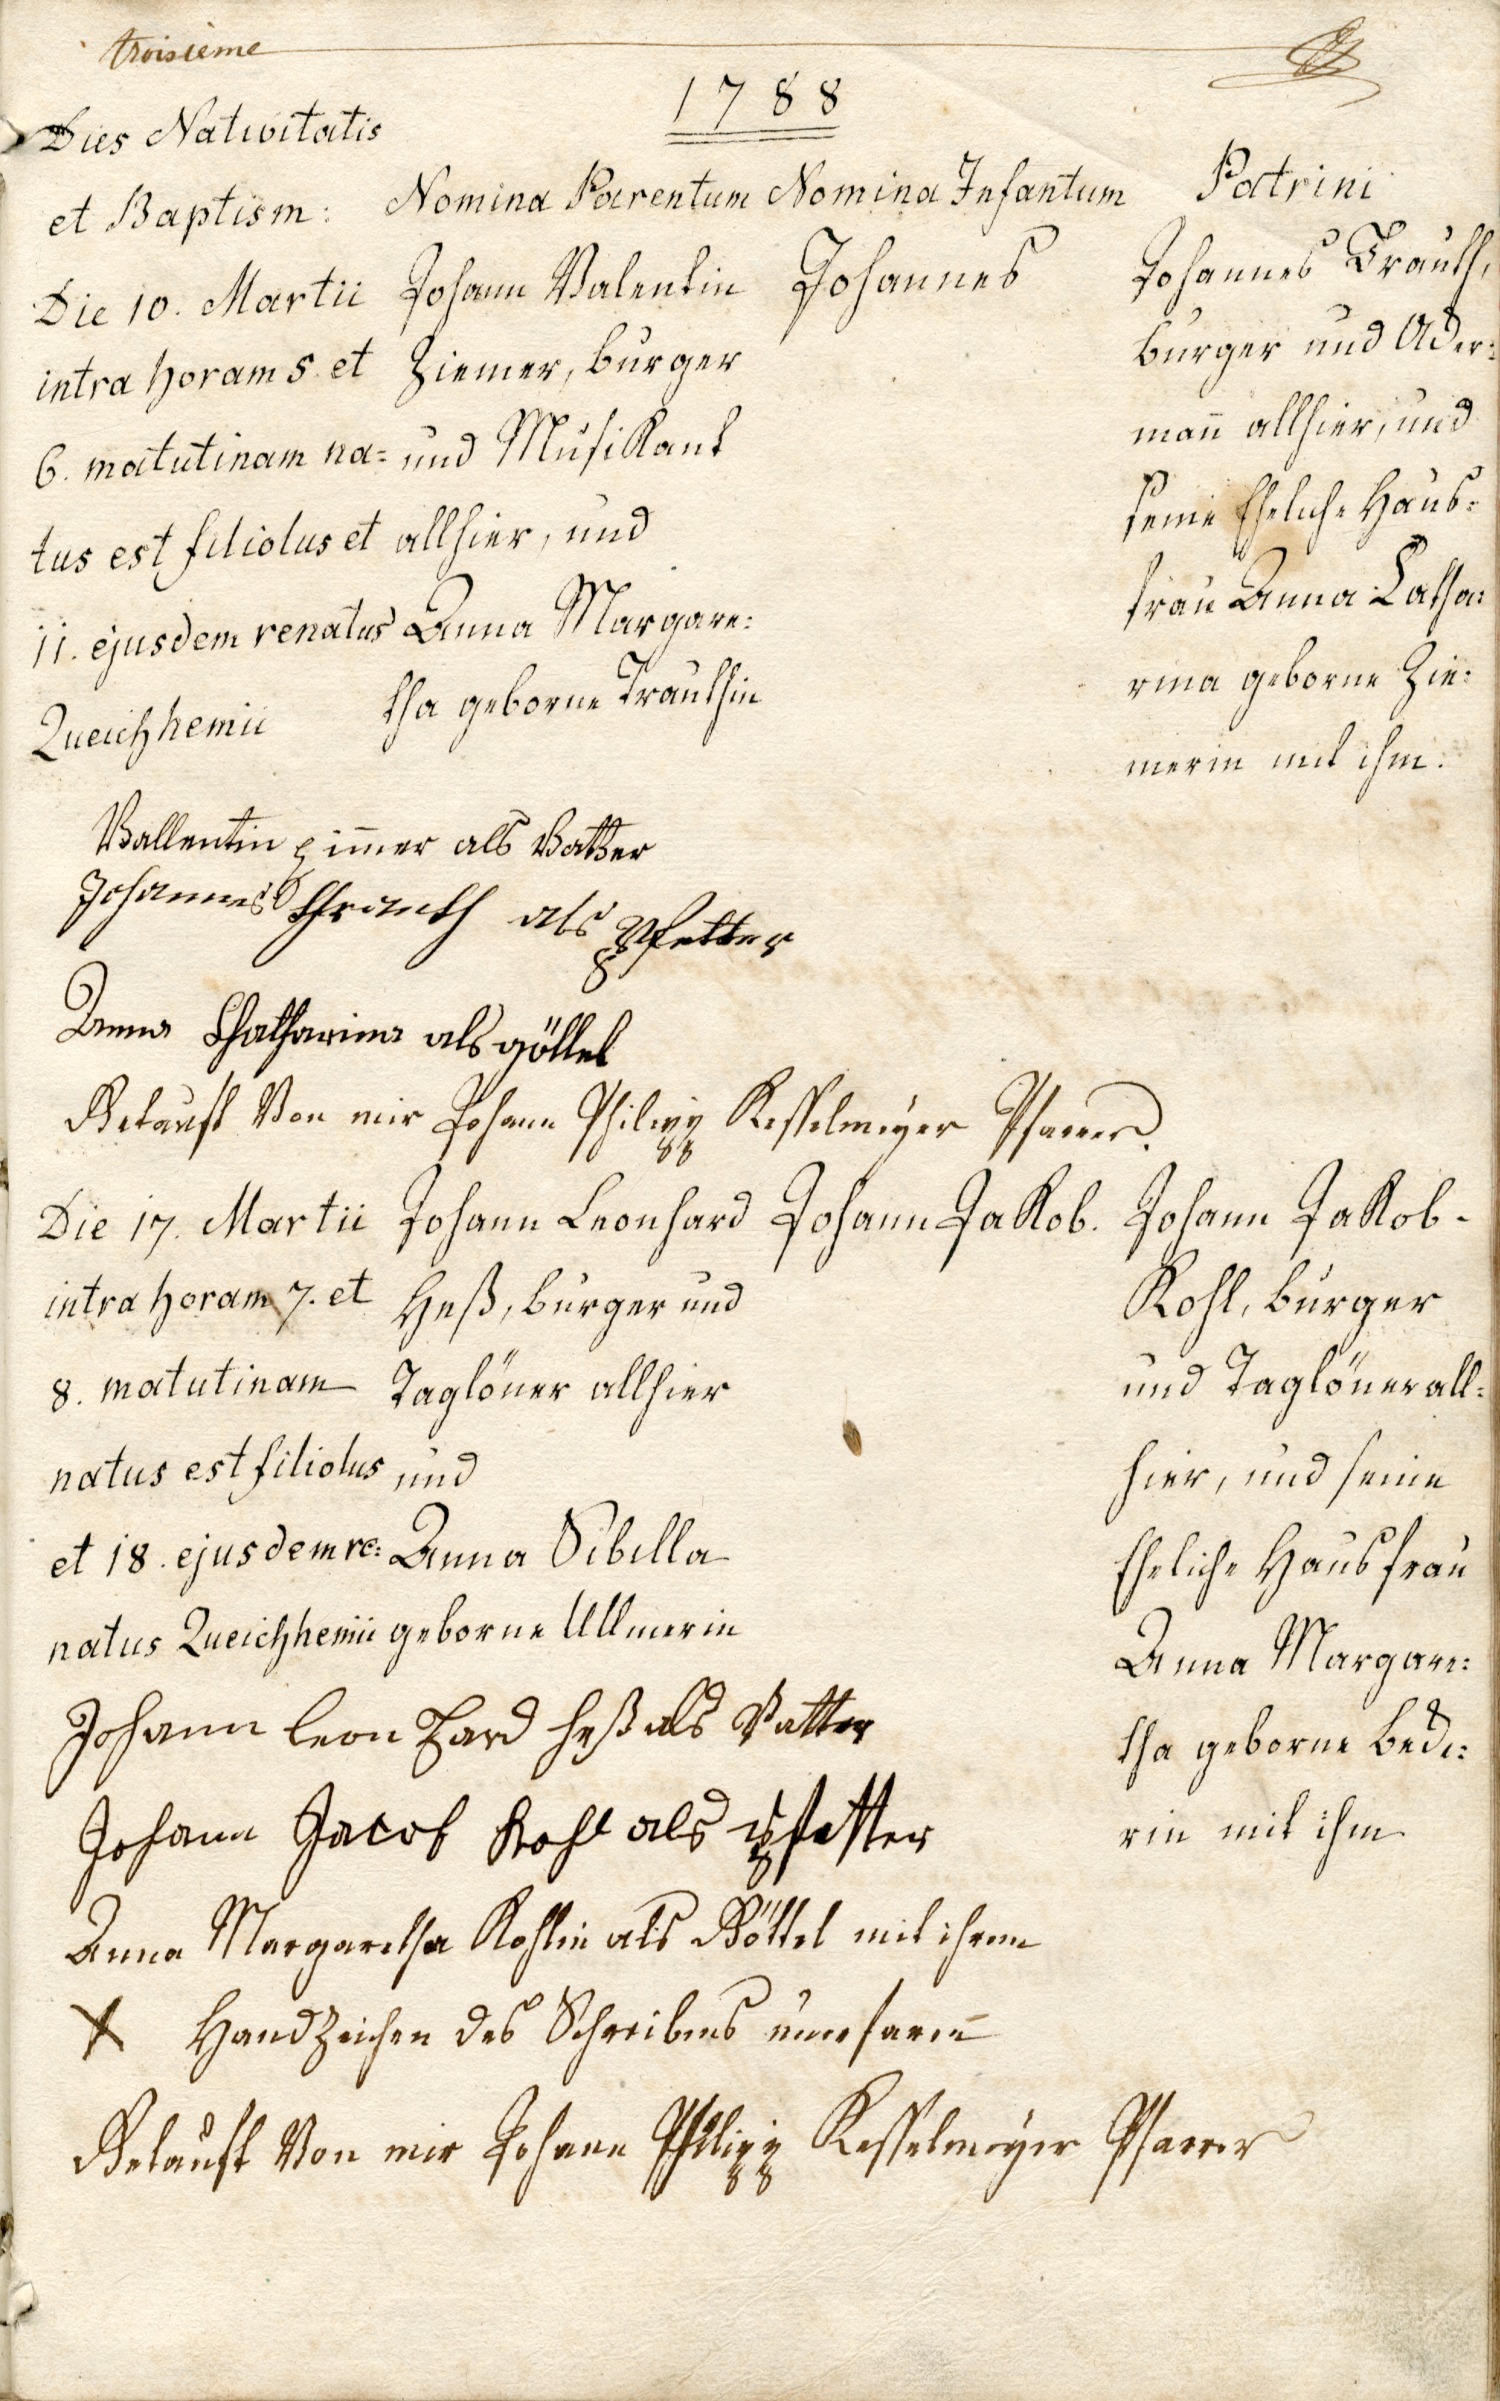 troisieme
1788
Dies Nativitatis
et Baptism:
Nomina Parentum
Nomina Infantum
Patrini
Die 10. Martii
intra horam 5. et
6. matutinam na=
tus est filiolus et
11. ejusdem renatus
Queichhemii
Johann Valentin
Ziemer, burger
und Musikant
allhier, und
Anna Margare:
tha geborne Trauthin
Johannes
Johannes Trauth,
burger und Acker:
mann allhier, und
seine Eheliche Haus=
frau Anna Catha:
rina geborne Zie:
merin mit ihm.
Vallentin zimer als Vatter
Johannes Thrauth als Pfetter
Anna Chatharina als göttel
Getauft Von mir Johann Philipp Kesselmeyer Pfarrer.
Die 17. Martii
intra horam 7. et
8. matutinam
natus est filiolus
et 18. ejusdem re:
natus Queichhemii
Johann Leonhard
Heß, burger und
Taglöner allhier
und
Anna Sibilla
geborne Ullmerin
Johann Jakob.
Johann Jakob
Kohl, burger
und Taglöner all:
hier, und seine
Eheliche Hausfrau
Anna Margare:
tha geborne Beck:
rin mit ihm
Johann leon hard heß als Vatter
Johann Jacob Kohl als Pfetter
Anna Margaretha Kohlin als Göttel mit ihrem
X Handzeichen des Schreibens unerfaren
Getauft Von mir Johann Philipp Kesselmeyer Pfarrer